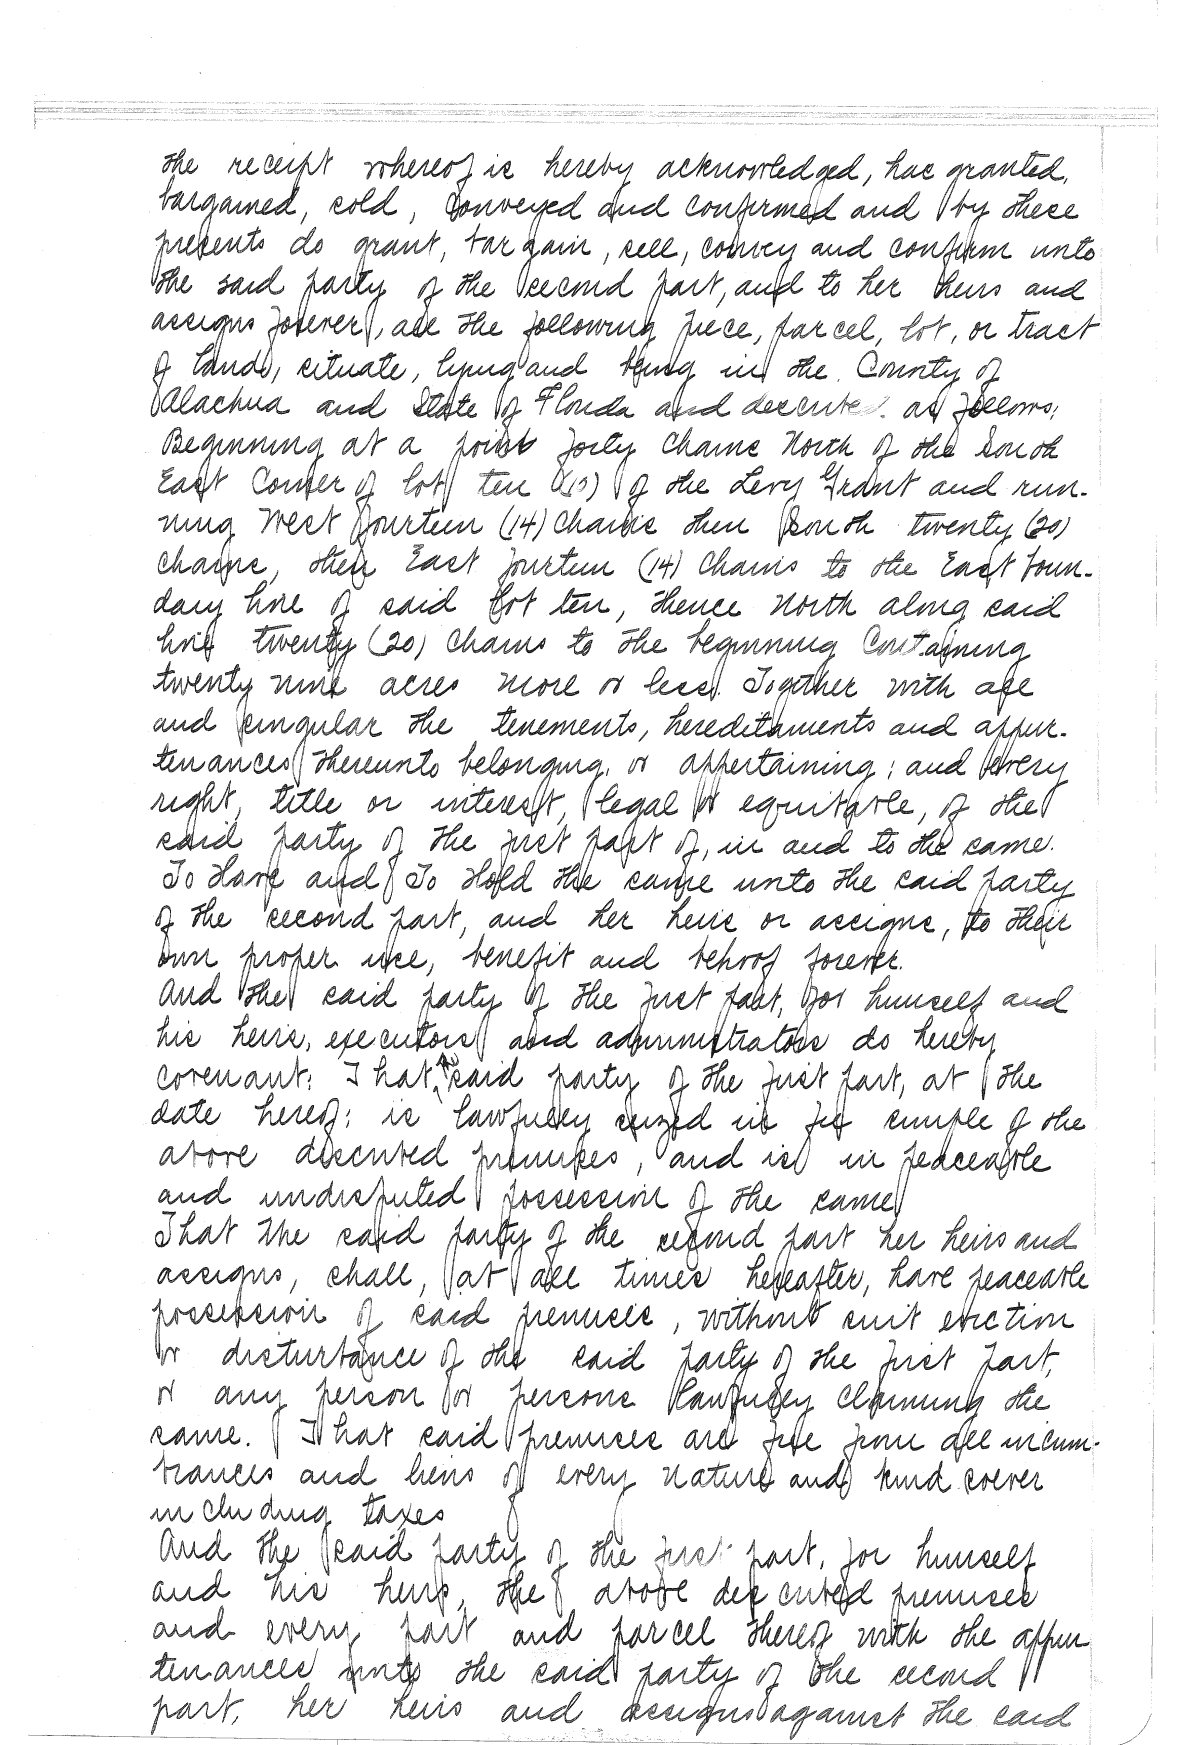 the receipt whereof is hereby acknowledged, has granted,
bargained, sold, conveyed and confirmed and by these
presents do grant, bargain, sell, convey and confirm unto
the said party of the second part, and to her heirs and
assigns forever, all the following piece, parcel, lot, or tract
of land, situate, lying and being in the County of
Alachua and State of Florida and described as follows:
Beginning at a point forty chains North of the South
East Corner of lot ten (10) of the Levy Grant and run-
ning West fourteen (14) Chains then South twenty (20)
chains, then East fourteen (14) Chains to the East boun-
dary line of said lot ten, thence North along said
line twenty (20) Chains to the beginning Containing
twenty nine acres more or less. Together with all
and singular the tenements, hereditaments and appur-
tenances thereunto belonging, or appertaining; and every
right, title or interest, legal or equitable, of the
said party of the first part of, in and to the same.
To Have and To Hold the same unto the said party
of the second part, and her heirs or assigns, to their
own proper use, benefit and behoof forever.
And the said party of the first part, for himself and
his heirs, executors and administrators do hereby
covenant: That, the said party of the first part, at the
date hereof; is lawfully seized in fee simple of the
above described premises, and is in peaceable
and undisputed possession of the same
That the said party of the second part her heirs and
assigns, shall, at all times hereafter, have peaceable
possession of said premises, without suit eviction
or disturbance of the said party of the first part,
or any person or persons lawfully claiming the
same. That said premises are free from all incum-
brances and liens of every nature and kind soever
including taxes
And the said party of the first part, for himself
and his heirs, the above described premises
and every part and parcel thereof with the appur
tenances unto the said party of the second
part, her heirs and assigns against the said